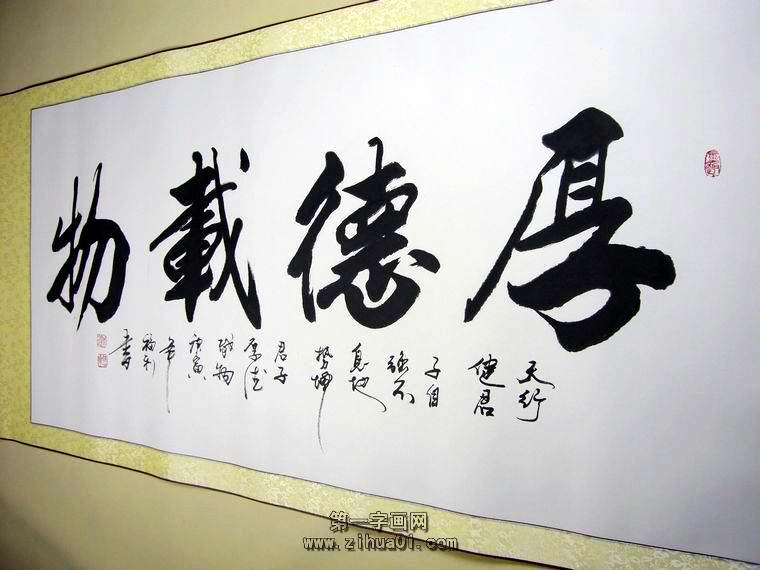 厚德載物
天行
健君
子自
强不
息地
势坤
君子
厚德
載物
庚寅
年
書
第一字画网
www.zihua01.com